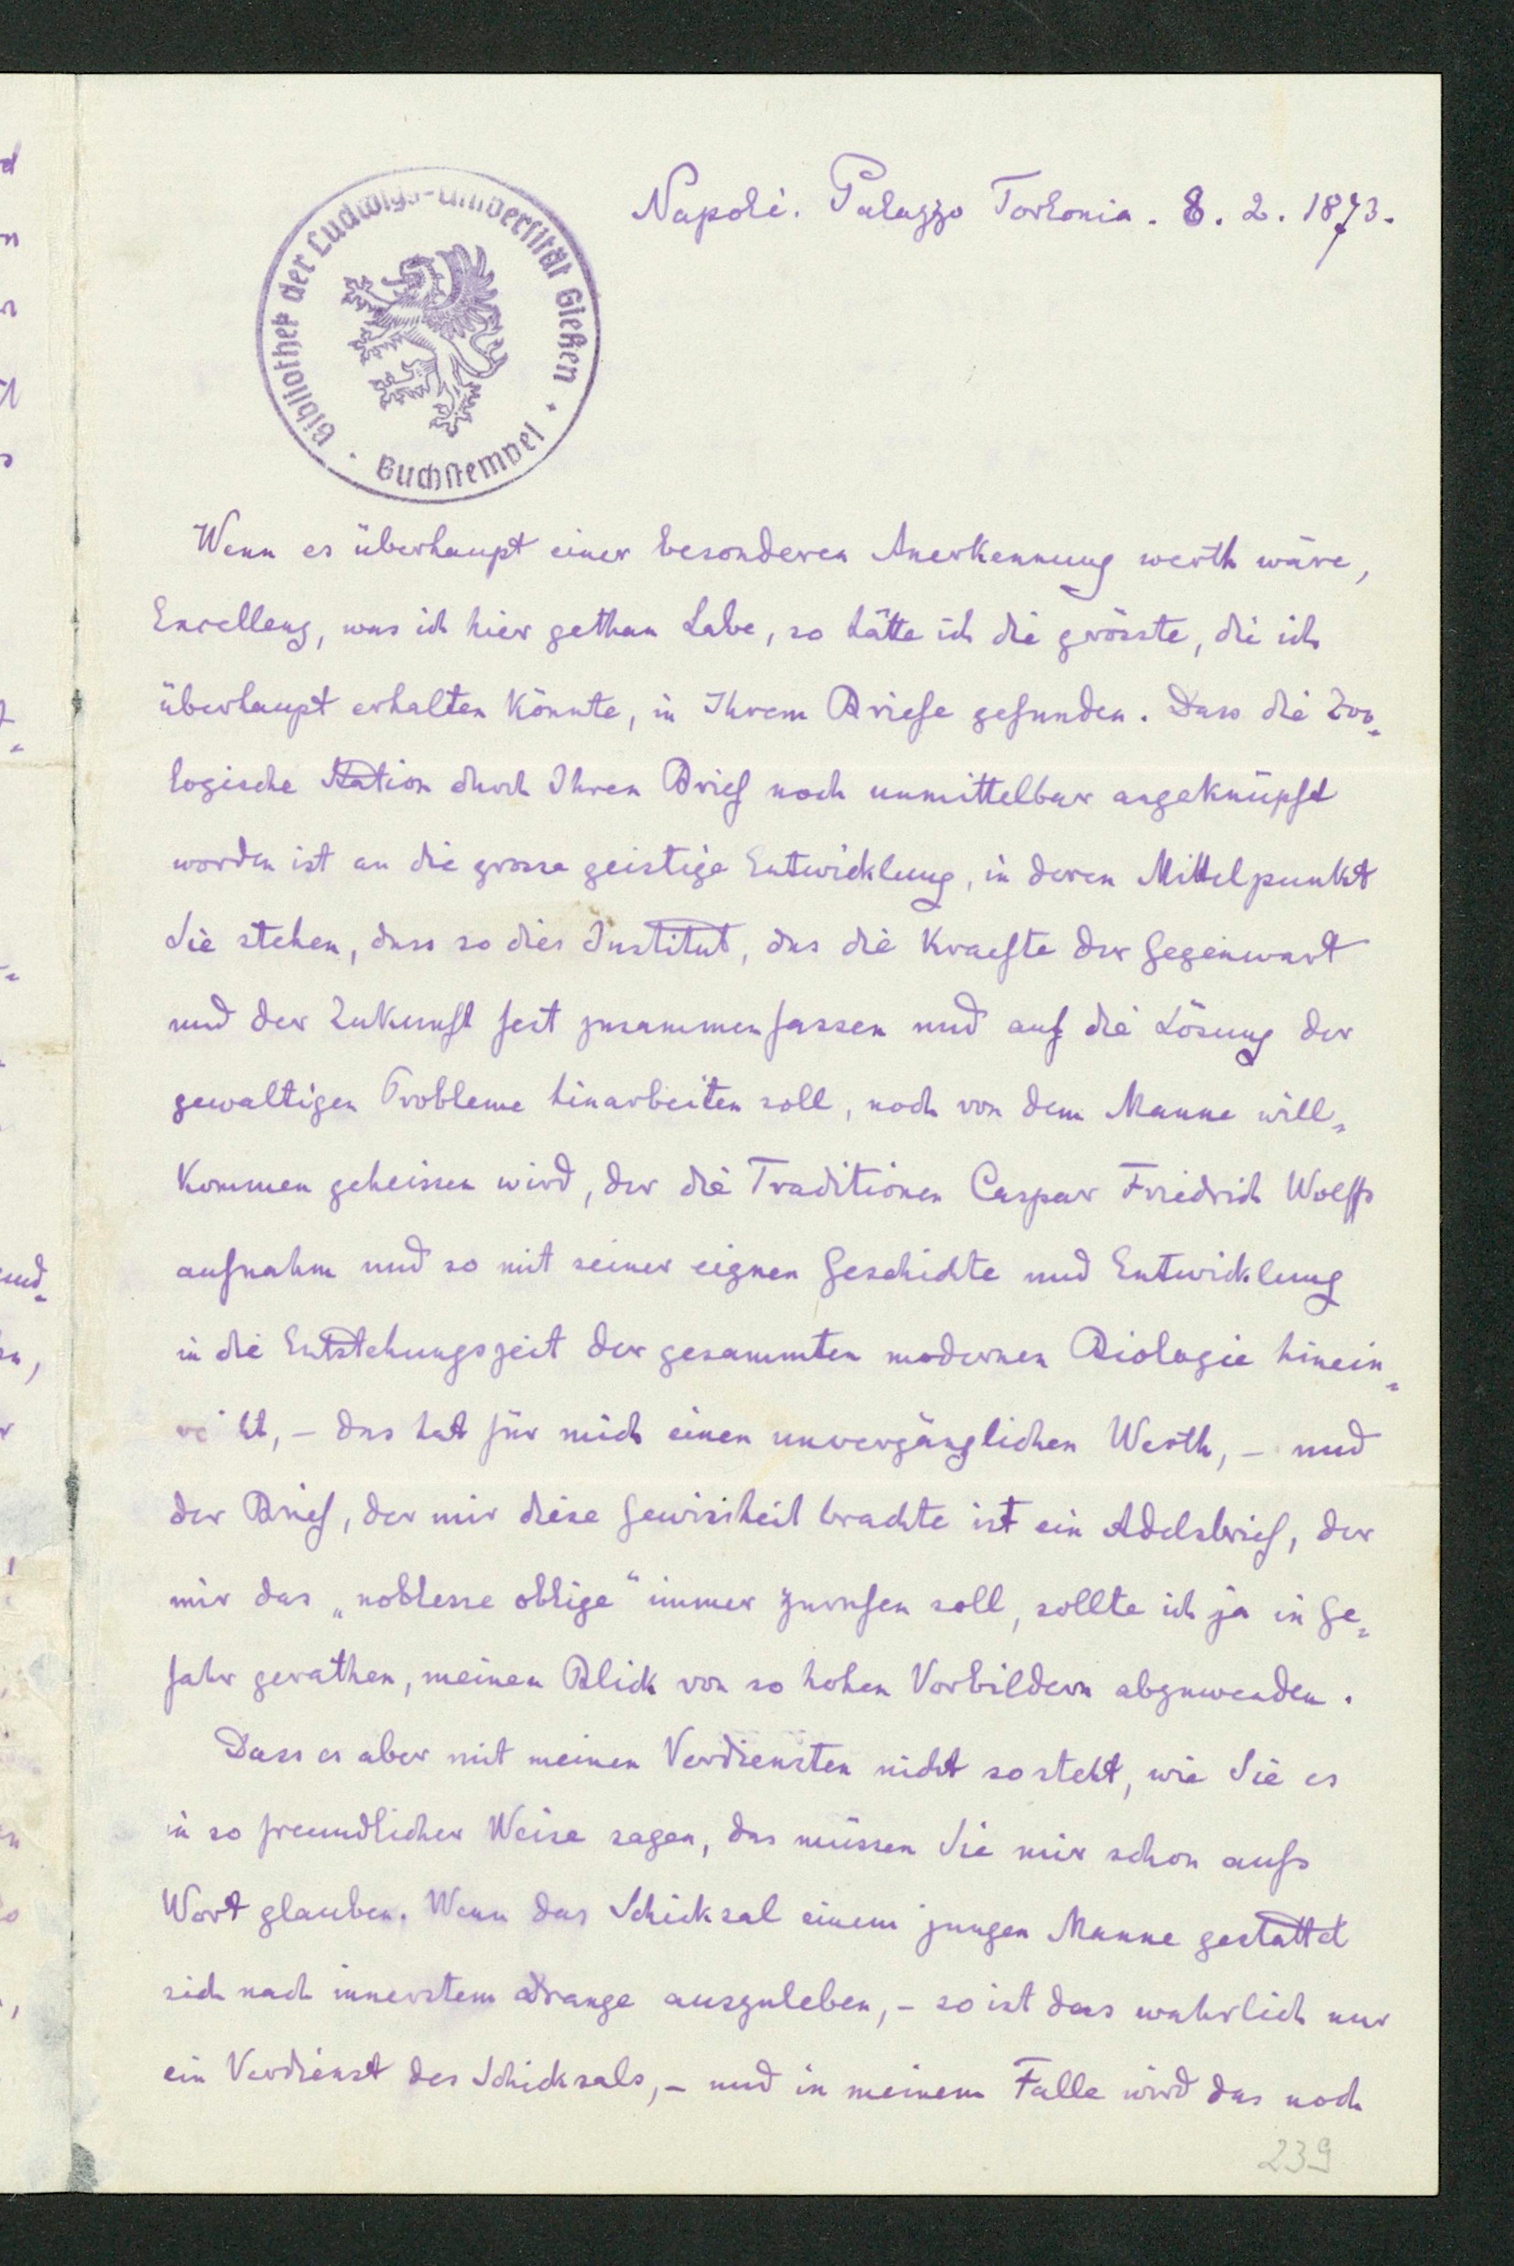 Napoli. Palazzo Torlonia. 8. 2. 1873.
Bibliothek der Ludwigs-Universität Gießen
Buchstempel
Wenn es überhaupt einer besonderen Anerkennung werth wäre,
Excellenz, was ich hier gethan habe, so hätte ich die grösste, die ich
überhaupt erhalten könnte, in Ihrem Briefe gefunden. Dass die Zoo-
logische Station durch Ihren Brief noch unmittelbar angeknüpft
worden ist an die grosse geistige Entwicklung, in deren Mittelpunkt
Sie stehen, dass so dies Institut, das die Kraefte der Gegenwart
und der Zukunft fest zusammenfassen und auf die Lösung der
gewaltigen Probleme hinarbeiten soll, noch von dem Manne will-
kommen geheissen wird, der die Traditionen Caspar Friedrich Wolffs
aufnahm und so mit seiner eignen Geschichte und Entwicklung
in die Entstehungszeit der gesammten modernen Biologie hinein-
reicht, – das hat für mich einen unvergänglichen Werth, – und
der Brief, der mir diese Gewissheit brachte ist ein Adelsbrief, der
mir das „noblesse oblige" immer zurufen soll, sollte ich ja in Ge-
fahr gerathen, meinen Blick von so hohen Vorbildern abzuwenden.
Dass es aber mit meinen Verdiensten nicht so steht, wie Sie es
in so freundlicher Weise sagen, das müssen Sie mir schon aufs
Wort glauben. Wenn das Schicksal einem jungen Manne gestattet
sich nach innerstem Drange auszuleben, – so ist das wahrlich nur
ein Verdienst des Schicksals, – und in meinem Falle wird das noch
239